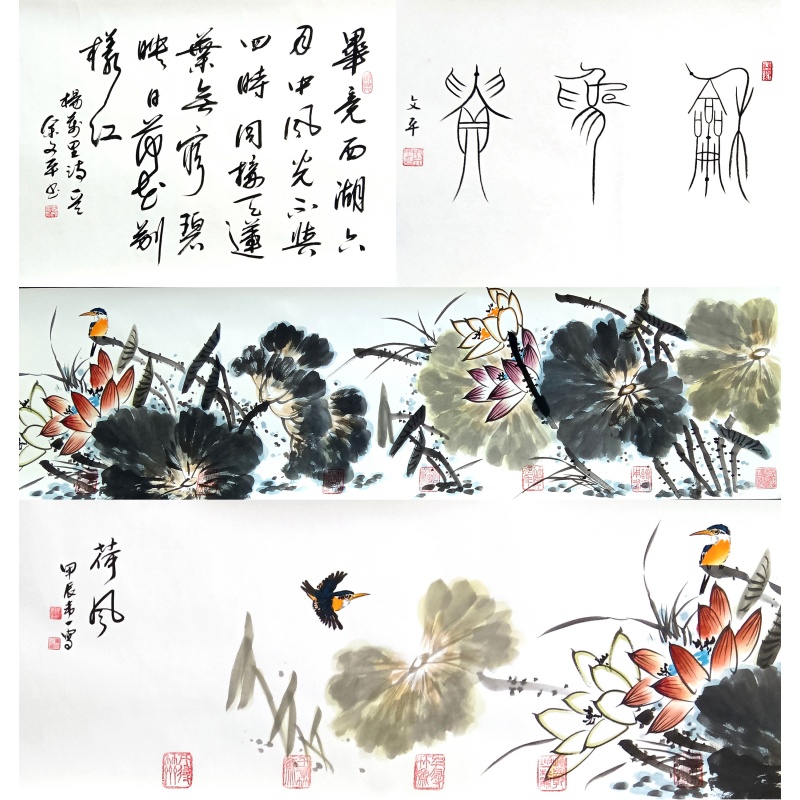 畢竟西湖六
月中風光不與
四時同接天蓮
葉無窮碧
映日荷花別
樣紅
楊萬里詩一首
余文平書
龢為貴
文平
荷風
甲辰